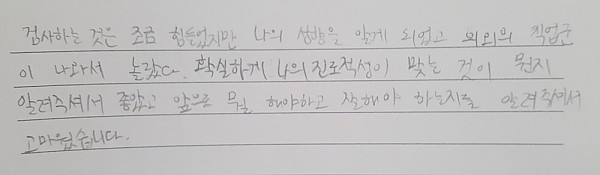 검사하는 것은 조금 힘들었지만 나의 성향을 알게 되었고 의외의 직업군
이 나와서 놀랐다. 확실하게 나의 진로적성이 맞는 것이 뭔지
알려주셔서 좋았고 앞으로 뭘 해야하고 잘해야 하는지를 알려주셔서
고마웠습니다.